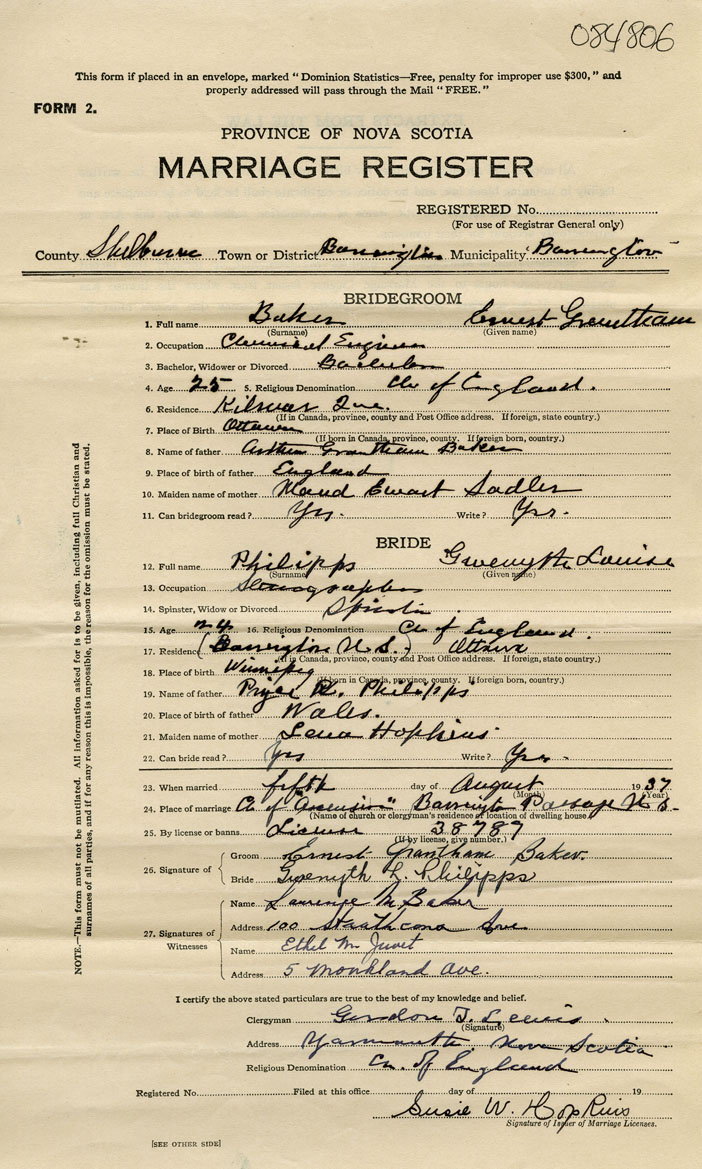 084806
This form if placed in an envelope, marked "Dominion Statistics—Free, penalty for improper use $300," and
properly addressed will pass through the Mail "FREE."
FORM 2.
PROVINCE OF NOVA SCOTIA
MARRIAGE REGISTER
REGISTERED No.
(For use of Registrar General only)
County Shelburne Town or District Barrington Municipality Barrington
BRIDEGROOM
1. Full name Baker Ernest Grantham
(Surname) (Given name)
2. Occupation Chemical Engineer
3. Bachelor, Widower or Divorced Bachelor
4. Age 25 5. Religious Denomination Ch of England.
6. Residence Kilmar Que.
(If in Canada, province, county and Post Office address. If foreign, state country.)
7. Place of Birth Ottawa
(If born in Canada, province, county. If foreign born, country.)
8. Name of father Arthur Grantham Baker
9. Place of birth of father England
10. Maiden name of mother Maud Ewart Sadler
11. Can bridegroom read? Yes. Write? Yes.
BRIDE
12. Full name Philipps Gwenyth Louise
(Surname) (Given name)
13. Occupation Stenographer
14. Spinster, Widow or Divorced Spinster
15. Age 24 16. Religious Denomination Ch of England.
17. Residence (Barrington N.S.) Ottawa
(If in Canada, province, county and Post Office address. If foreign, state country.)
18. Place of birth Winnipeg
(If born in Canada, province, county. If foreign born, country.)
19. Name of father Pryce R. Philipps
20. Place of birth of father Wales.
21. Maiden name of mother Lena Hopkins
22. Can bride read? Yes Write? Yes.
23. When married fifth day of August 1937
(Month) (Year)
24. Place of marriage Ch of "Ascension" Barrington Passage N.S.
(Name of church or clergyman's residence or location of dwelling house.)
25. By license or banns License 38787
(If by license, give number.)
26. Signature of
Groom Ernest Grantham Baker.
Bride Gwenyth L. Philipps
27. Signatures of Witnesses
Name Lawrence M. Baker
Address 100 Strathcona Ave
Name Ethel M. Juvet
Address 5 Monkland Ave.
I certify the above stated particulars are true to the best of my knowledge and belief.
Clergyman Gordon T. Lewis.
(Signature)
Address Yarmouth, Nova Scotia
Religious Denomination Ch. of England
Registered No. Filed at this office day of 19
Susie W. Hopkins
Signature of Issuer of Marriage Licenses.
[SEE OTHER SIDE]
NOTE.—This form must not be mutilated. All information asked for is to be given, including full Christian and
surnames of all parties, and if for any reason this is impossible, the reason for the omission must be stated.